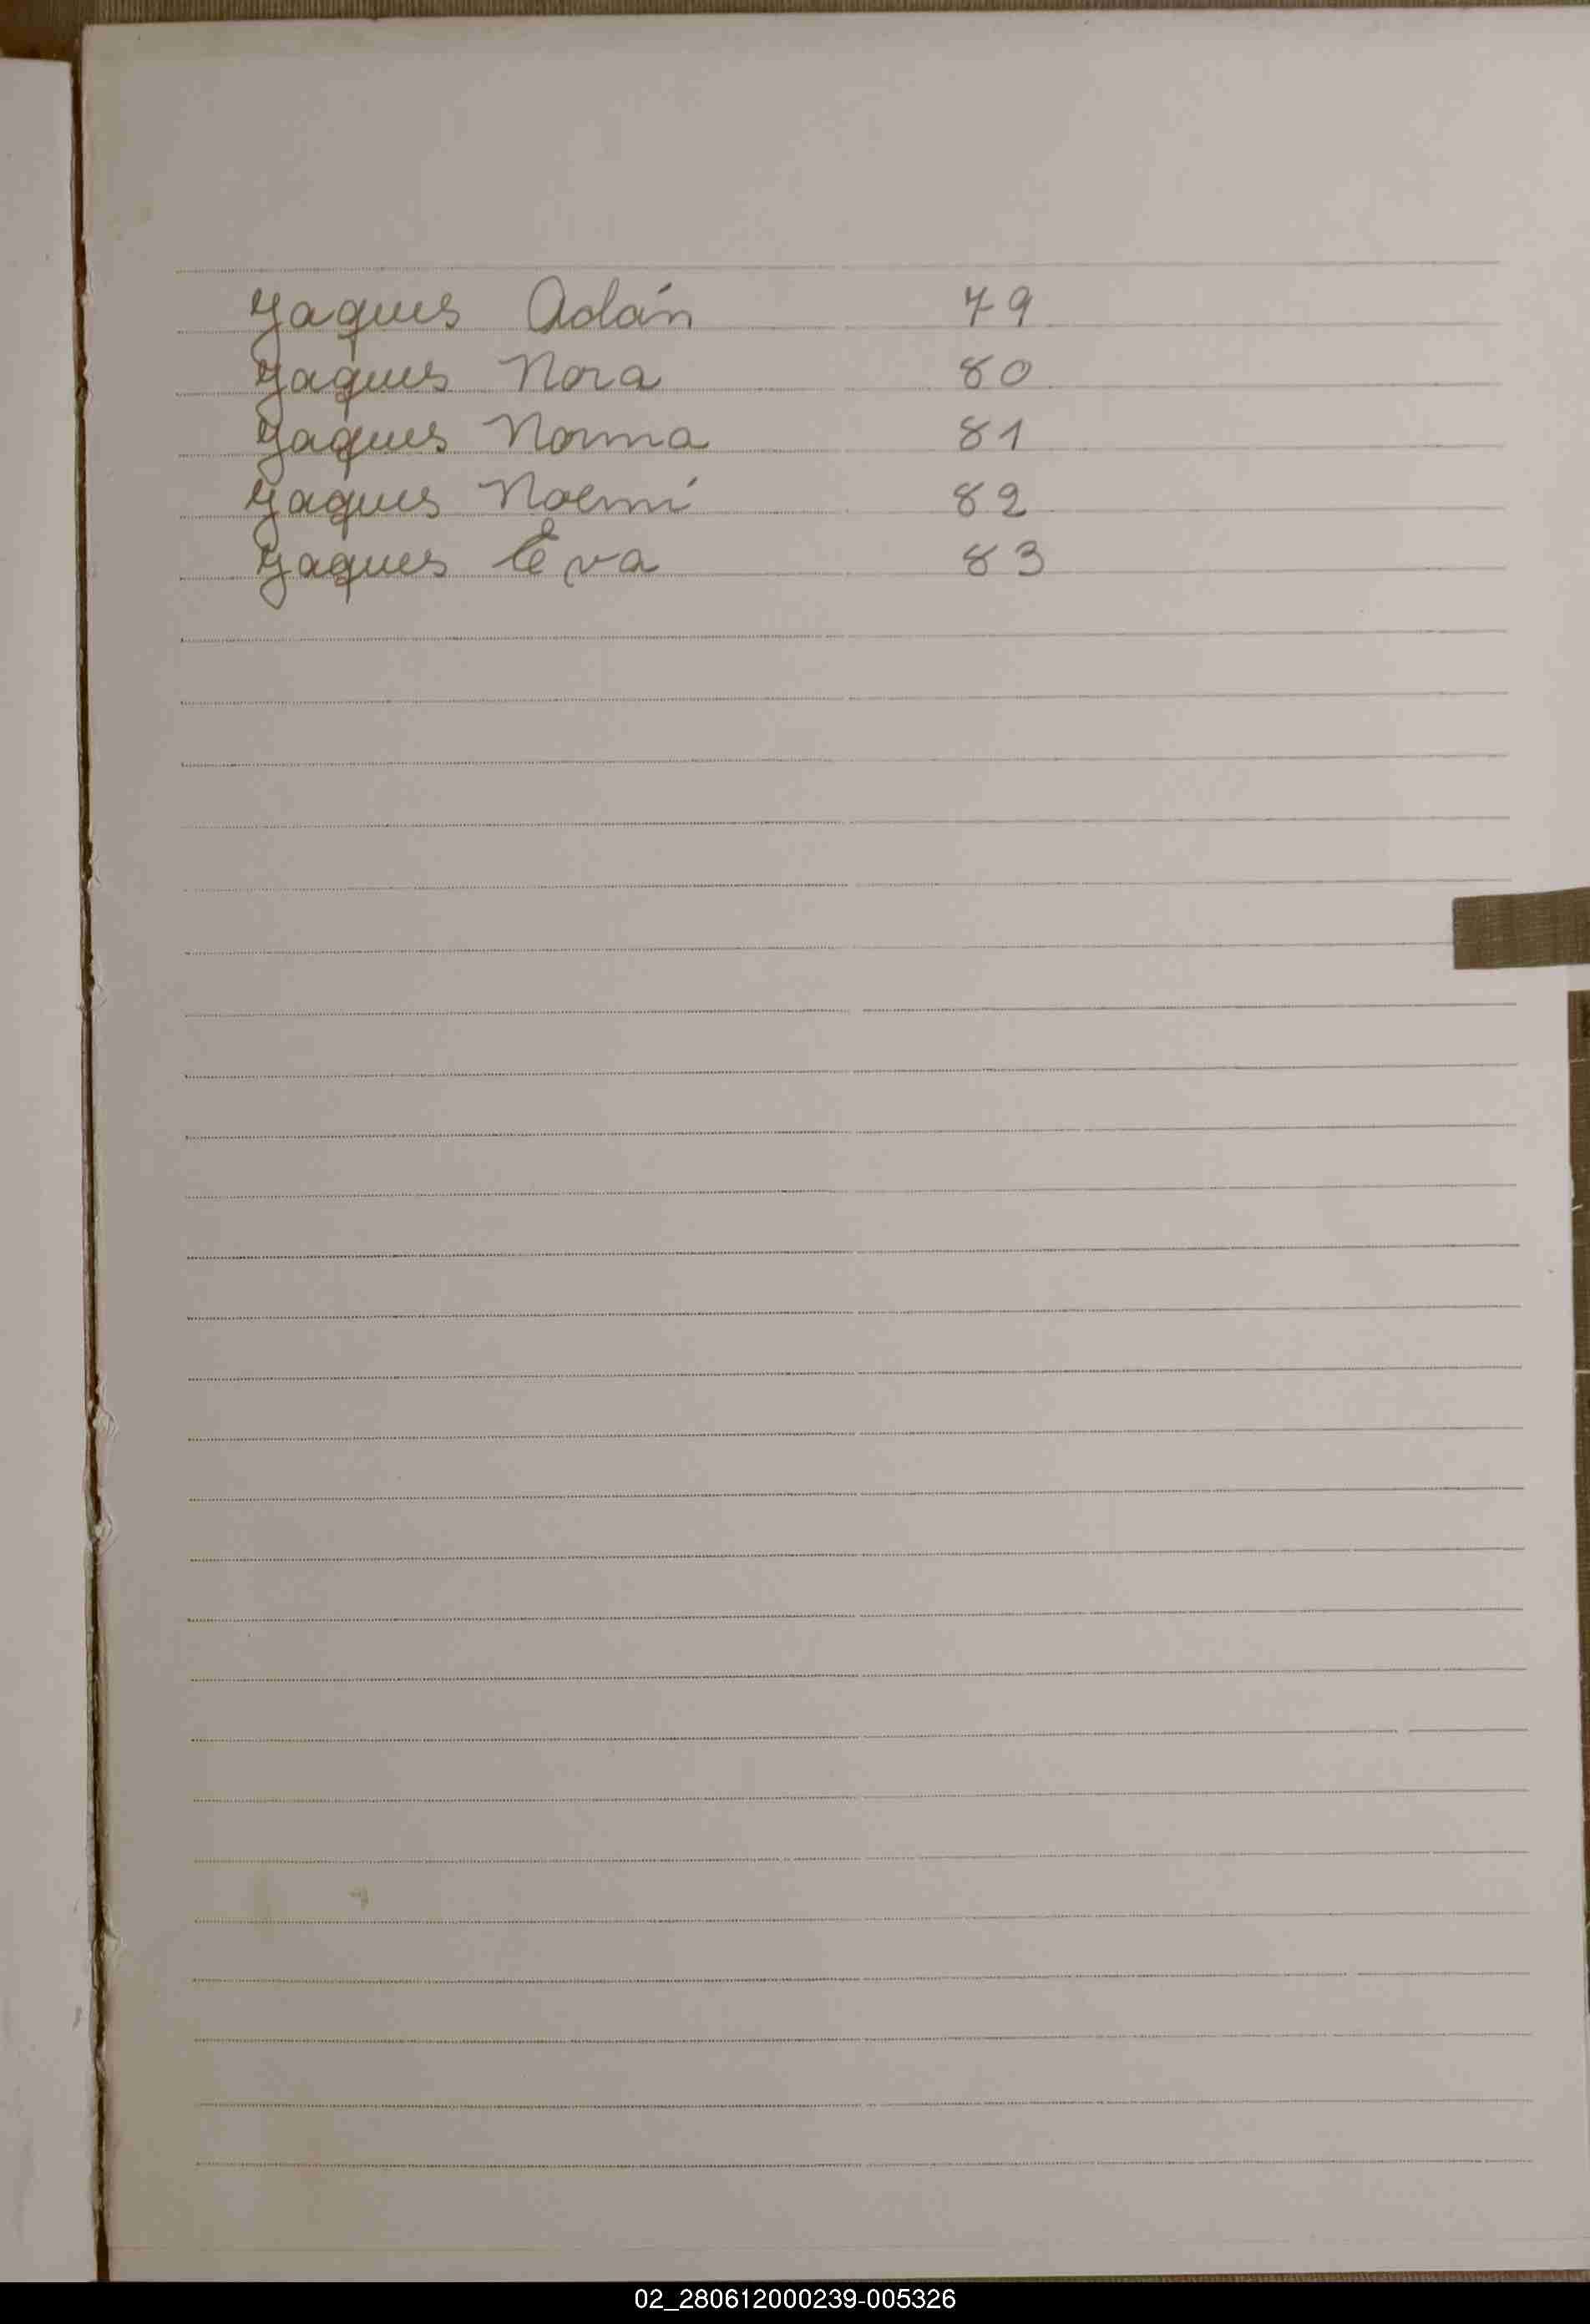 Yaques Adán 79
Yaques Nora 80
Yaques Norma 81
Yaques Noemí 82
Yaques Eva 83
02_280612000239-005326